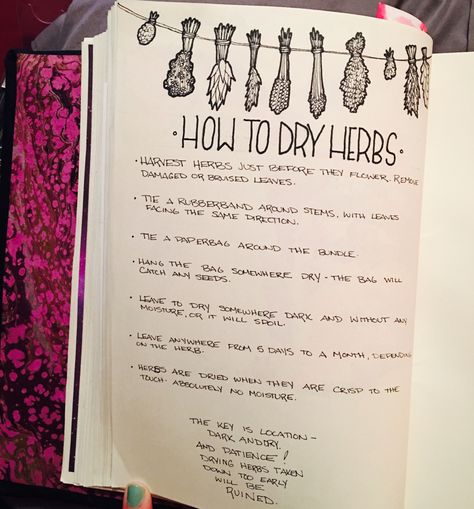 · HOW TO DRY HERBS ·
· HARVEST HERBS JUST BEFORE THEY FLOWER. REMOVE
DAMAGED OR BRUISED LEAVES.
· TIE A RUBBERBAND AROUND STEMS, WITH LEAVES
FACING THE SAME DIRECTION.
· TIE A PAPERBAG AROUND THE BUNDLE.
· HANG THE BAG SOMEWHERE DRY - THE BAG WILL
CATCH ANY SEEDS.
· LEAVE TO DRY SOMEWHERE DARK AND WITHOUT ANY
MOISTURE, OR IT WILL SPOIL.
· LEAVE ANYWHERE FROM 5 DAYS TO A MONTH, DEPENDING
ON THE HERB.
· HERBS ARE DRIED WHEN THEY ARE CRISP TO THE
TOUCH - ABSOLUTELY NO MOISTURE.
THE KEY IS LOCATION -
DARK AND DRY.
AND PATIENCE!
DRYING HERBS TAKEN
DOWN TOO EARLY
WILL BE
RUINED.